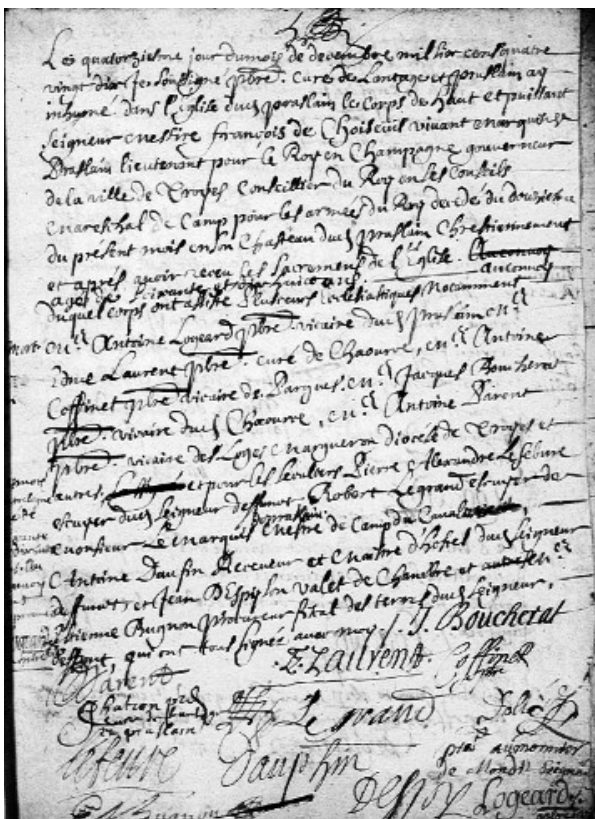 Le quatorziesme jour du mois de decembre mil six cens quatre
vingt dix Je soussigne pbre. curé de Lantage et praslain ay
inhumé dans l'Eglise dud praslain le Corps de haut et puissant
seigneur messire françois de Choiseuil vivant marquis de
Praslain lieutenant pour le Roy en Champagne gouverneur
de la ville de Troyes Conseillier du Roy en ses Conseils
mareschal de Camp pour les armées du Roy decedé du douziesme
du présent mois en son Chasteau dud praslain Chrestiennement
et après avoir receu les sacremens de l'Eglise.
agé de soixante et dix huict ans. au convoy
duquel corps ont assisté Plusieurs Ecclesiastiques Nocamment
Antoine Logeard pbre. vicaire dud praslain
Edme Laurent pbre. curé de Chaource, Antoine
Coffinet pbre vicaire de Pargues. Jacques Boucherat
pbre. vicaire dud Chaource, Antoine Parent
pbre. vicaire des Loges Margueron diocèse de Troyes et
autres, et pour les seculiers Pierre Alexandre Lefebure
escuyer dud seigneur deffunct Robert Legrand escuyer de
monsieur Le marquis de praslain mestre de Camp de Cavalerie,
Antoine Daufin Receveur et maitre d'hostel dud seigneur
deffunct et Jean Despilon valet de Chambre et
Estienne Bugnon procureur fiscal des terres dud seigneur,
deffunt, qui ont tous signé avec moy. J. Boucherat
E. Laurent. Coffinet
Parent pbre
Chation pbre
curé de Lantage Le grand
et praslain
Lefeure Dauphin pbre aumonier
de Mondt seigneur
E Bugnon Despy Logeard